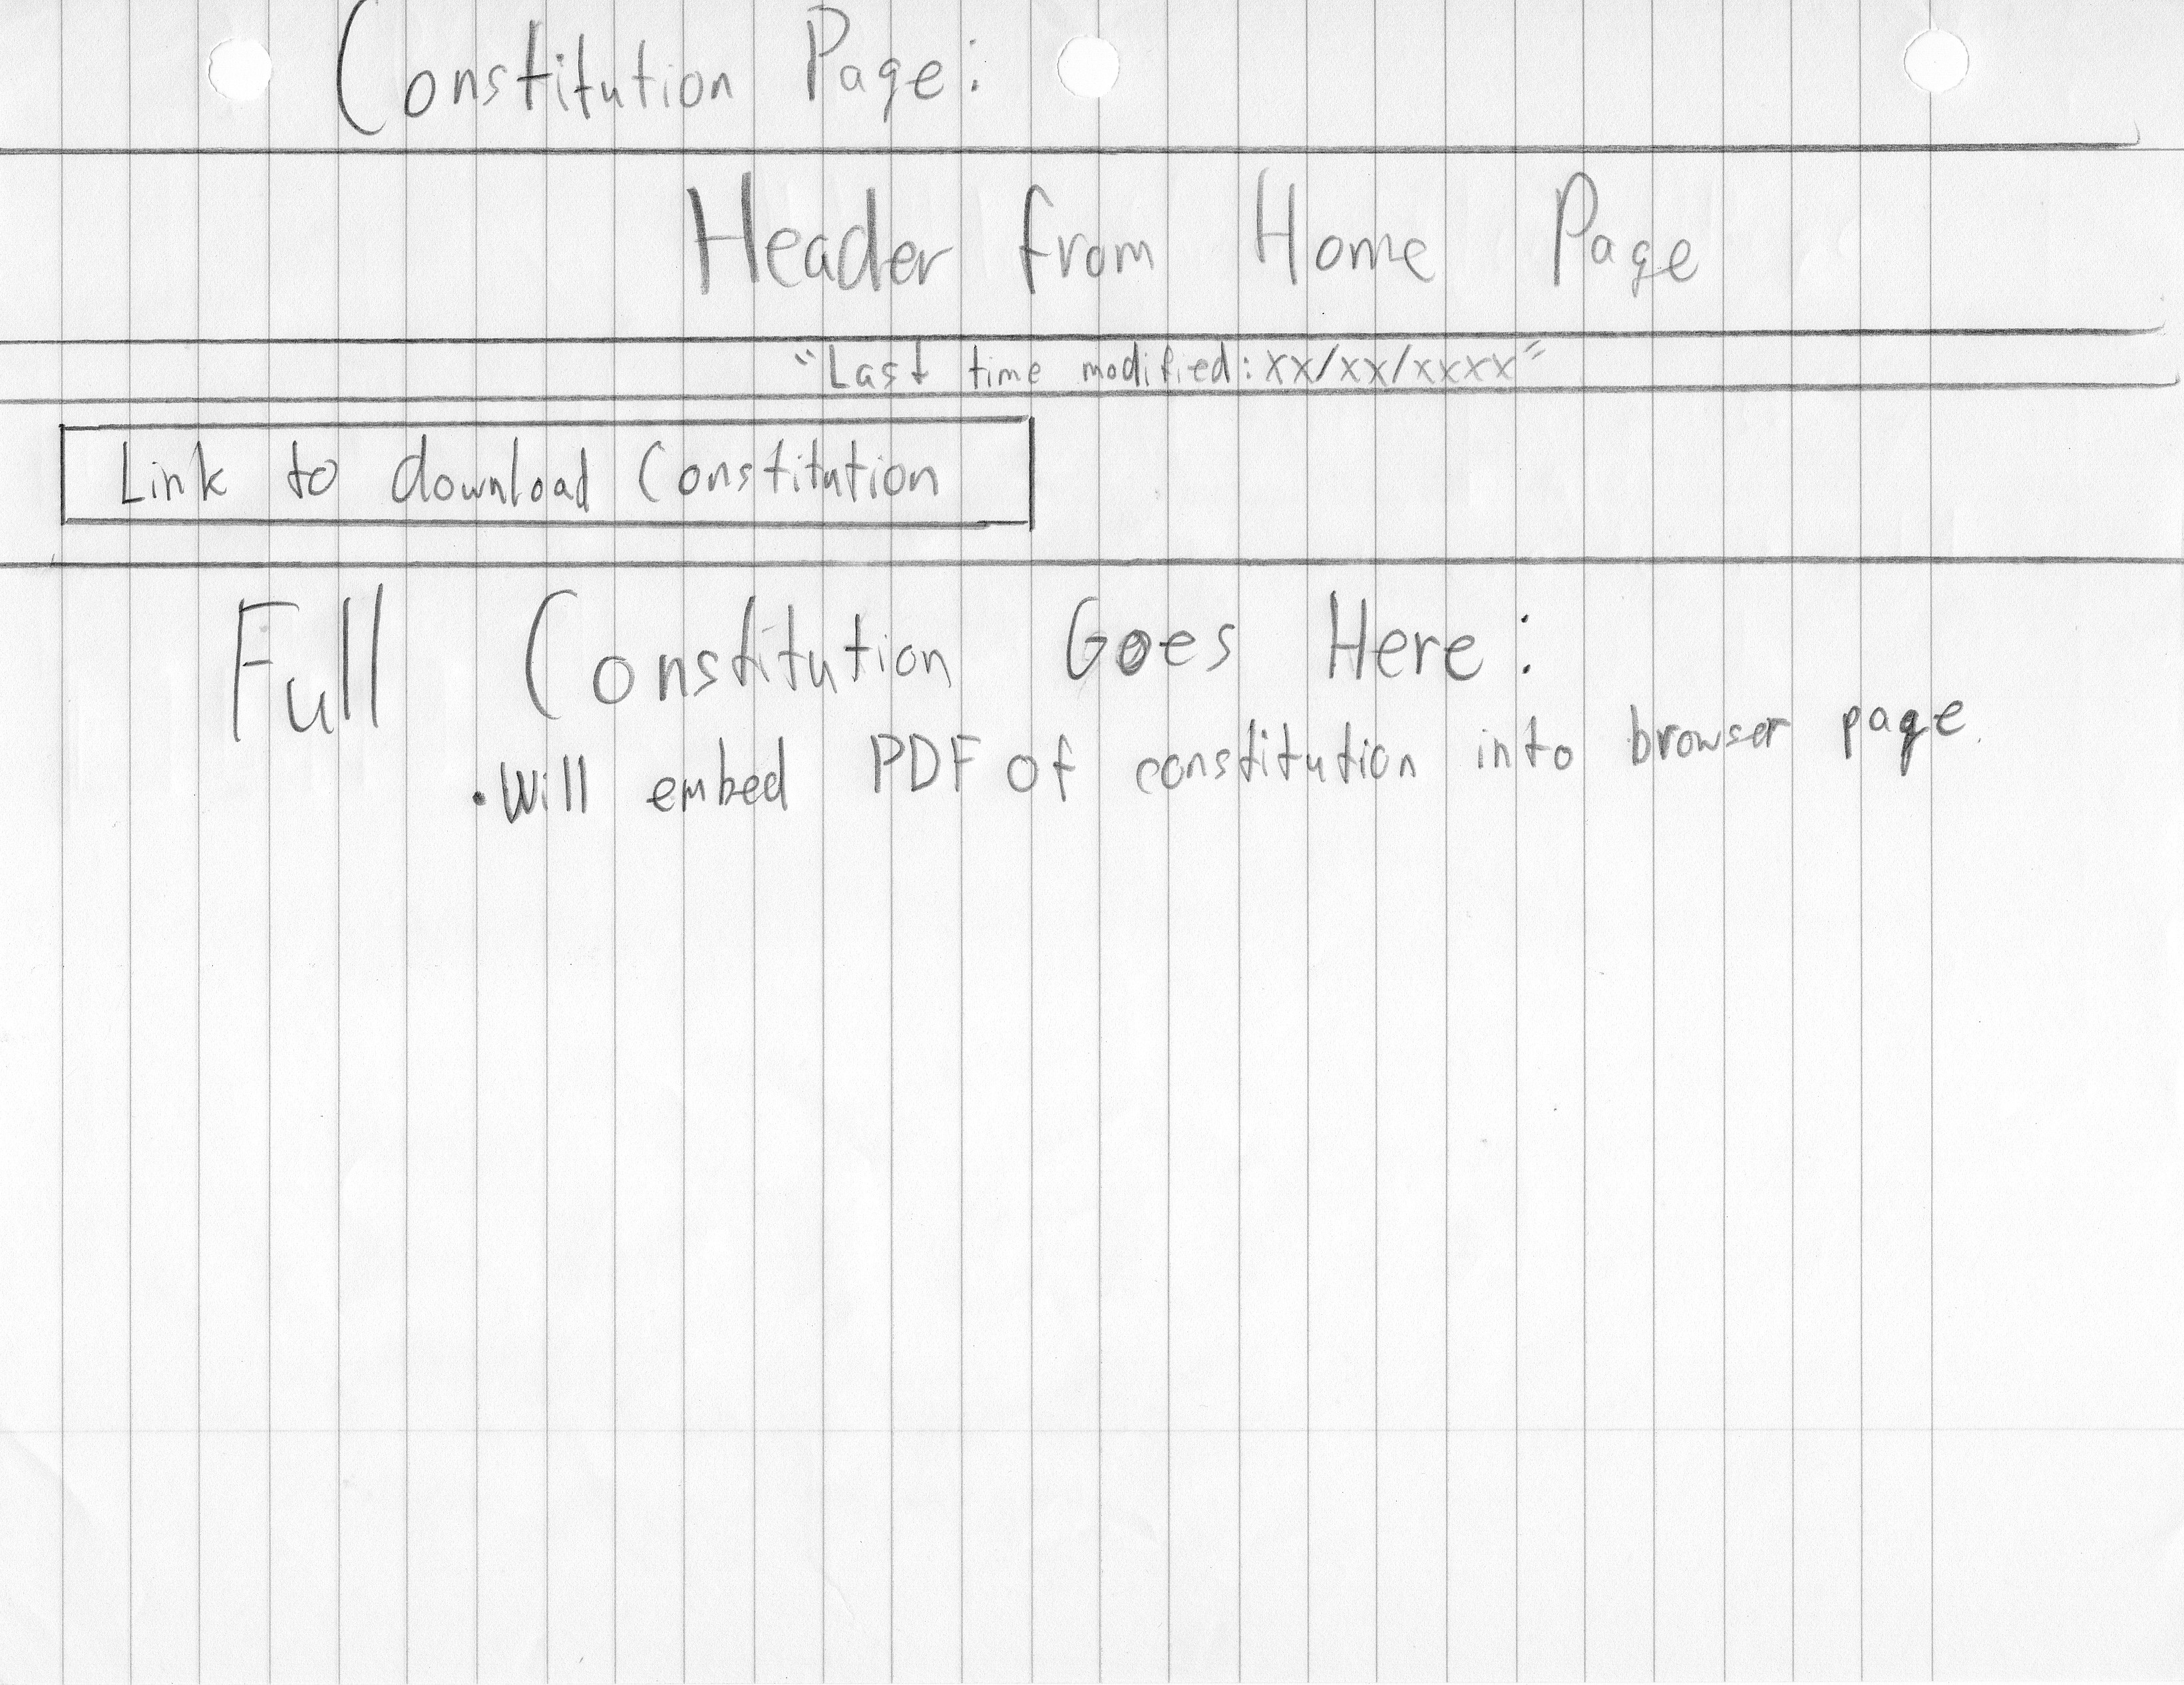 Constitution Page:
Header from Home Page
"Last time modified: xx/xx/xxxx"
Link to download Constitution
Full Constitution Goes Here:
• Will embed PDF of constitution into browser page.